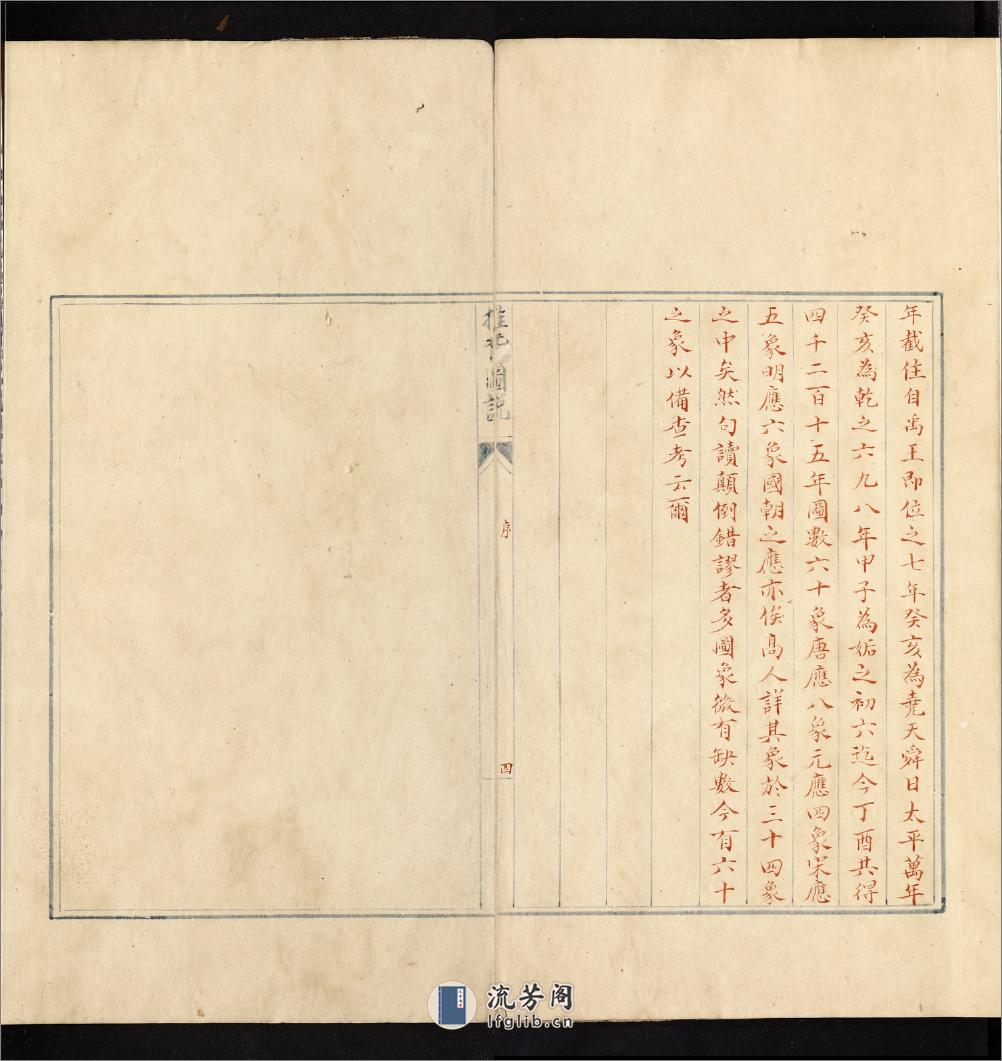 年截住自禹王即位之七年癸亥為堯天舜日太平萬年
癸亥為乾之六九八年甲子為姤之初六迄今丁酉共得
四千二百十五年圖數六十象唐應八象元應四象宋應
五象明應六象國朝之應亦俟高人詳其象於三十四象
之中矣然句讀顛倒錯謬者多圖象微有缺數今有六十
之象以備查考云爾
推背圖說
序
四
流芳阁
lfglib.cn